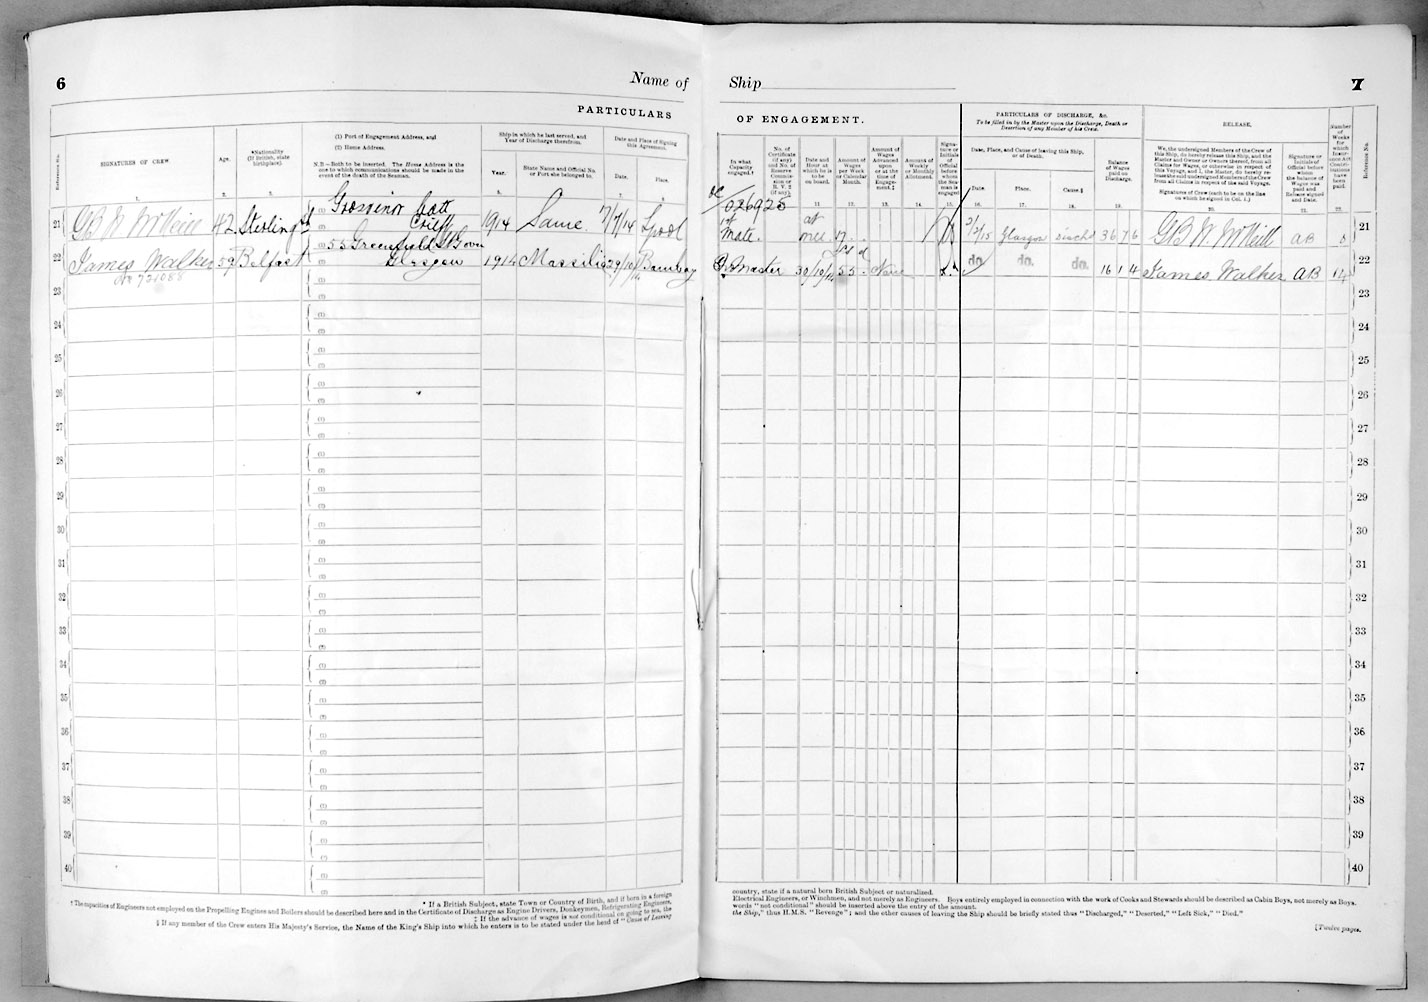 6
Name of
Ship
7
PARTICULARS
OF ENGAGEMENT.
Reference No.
SIGNATURES OF CREW.
Age.
*Nationality
(If British, state
birthplace).
(1) Port of Engagement Address, and
(2) Home Address.
N.B.—Both to be inserted. The Home Address is the
one to which communications should be made in the
event of the death of the Seaman.
Ship in which he last served, and
Year of Discharge therefrom.
Year.
State Name and Official No.
or Port she belonged to.
Date and Place of Signing
this Agreement.
Date.
Place.
In what
Capacity
engaged.†
No. of
Certificate
(if any)
Date and
Hour at
which he is
to be
on board.
Amount of
Wages
per Week
or Calendar
Month.
Amount of
Wages
Advanced
upon
or at the
time of
Engage-
ment.‡
Amount of
Weekly
or Monthly
Allotment.
Signa-
ture or
Initials
of
Official
before
whom
the Sea-
man is
engaged
PARTICULARS OF DISCHARGE, &c.
To be filled in by the Master upon the Discharge, Death or
Desertion of any Member of his Crew.
Date, Place, and Cause of leaving this Ship,
or of Death.
Date.
Place.
Cause.§
Balance
of Wages
paid on
Discharge.
RELEASE.
We, the undersigned Members of the Crew of
this Ship, do hereby release this Ship, and the
Master and Owner or Owners thereof, from all
Claims for Wages, or otherwise in respect of
this Voyage, and I, the Master, do hereby re-
lease the said undersigned Members of the Crew
from all Claims in respect of the said Voyage.
Signatures of Crew (each to be on the line
on which he signed in Col. 1.)
Signature or
Initials of
Official before
whom
the balance of
Wages was
paid and
Release signed
and Date.
Number
of
Weeks
for
which
Insur-
ance Act
Contri-
butions
have
been
paid.
Reference No.
21 G B W McNeill 42 Sterling Grosvenor Cott Crieff 1914 Same 7/7/14 Lpool 026926 1st Mate. 2/2/15 Glasgow Disch'd 36 7 6 G B W. McNeill AB 21
22 James Walker 59 Belfast 55 Greenfield St Govan Glasgow 1914 Massilia 29/10/14 Bombay Q. Master 30/10/14 5 5 None do. do. do. 16 1 4 James Walker AB 14 22
No 721088
23
24
25
26
27
28
29
30
31
32
33
34
35
36
37
38
39
40
* If a British Subject, state Town or Country of Birth, and if born in a foreign
country, state if a natural born British Subject or naturalized.
† The capacities of Engineers not employed on the Propelling Engines and Boilers should be described here and in the Certificate of Discharge as Engine Drivers, Donkeymen, Refrigerating Engineers,
Electrical Engineers, or Winchmen, and not merely as Engineers. Boys entirely employed in connection with the work of Cooks and Stewards should be described as Cabin Boys, not merely as Boys.
‡ If the advance of wages is not conditional on going to sea, the
words "not conditional" should be inserted above the entry of the amount.
§ If any member of the Crew enters His Majesty's Service, the Name of the King's Ship into which he enters is to be stated under the head of "Cause of Leaving
the Ship," thus H.M.S. "Revenge"; and the other causes of leaving the Ship should be briefly stated thus "Discharged," "Deserted," "Left Sick," "Died."
[Twelve pages.